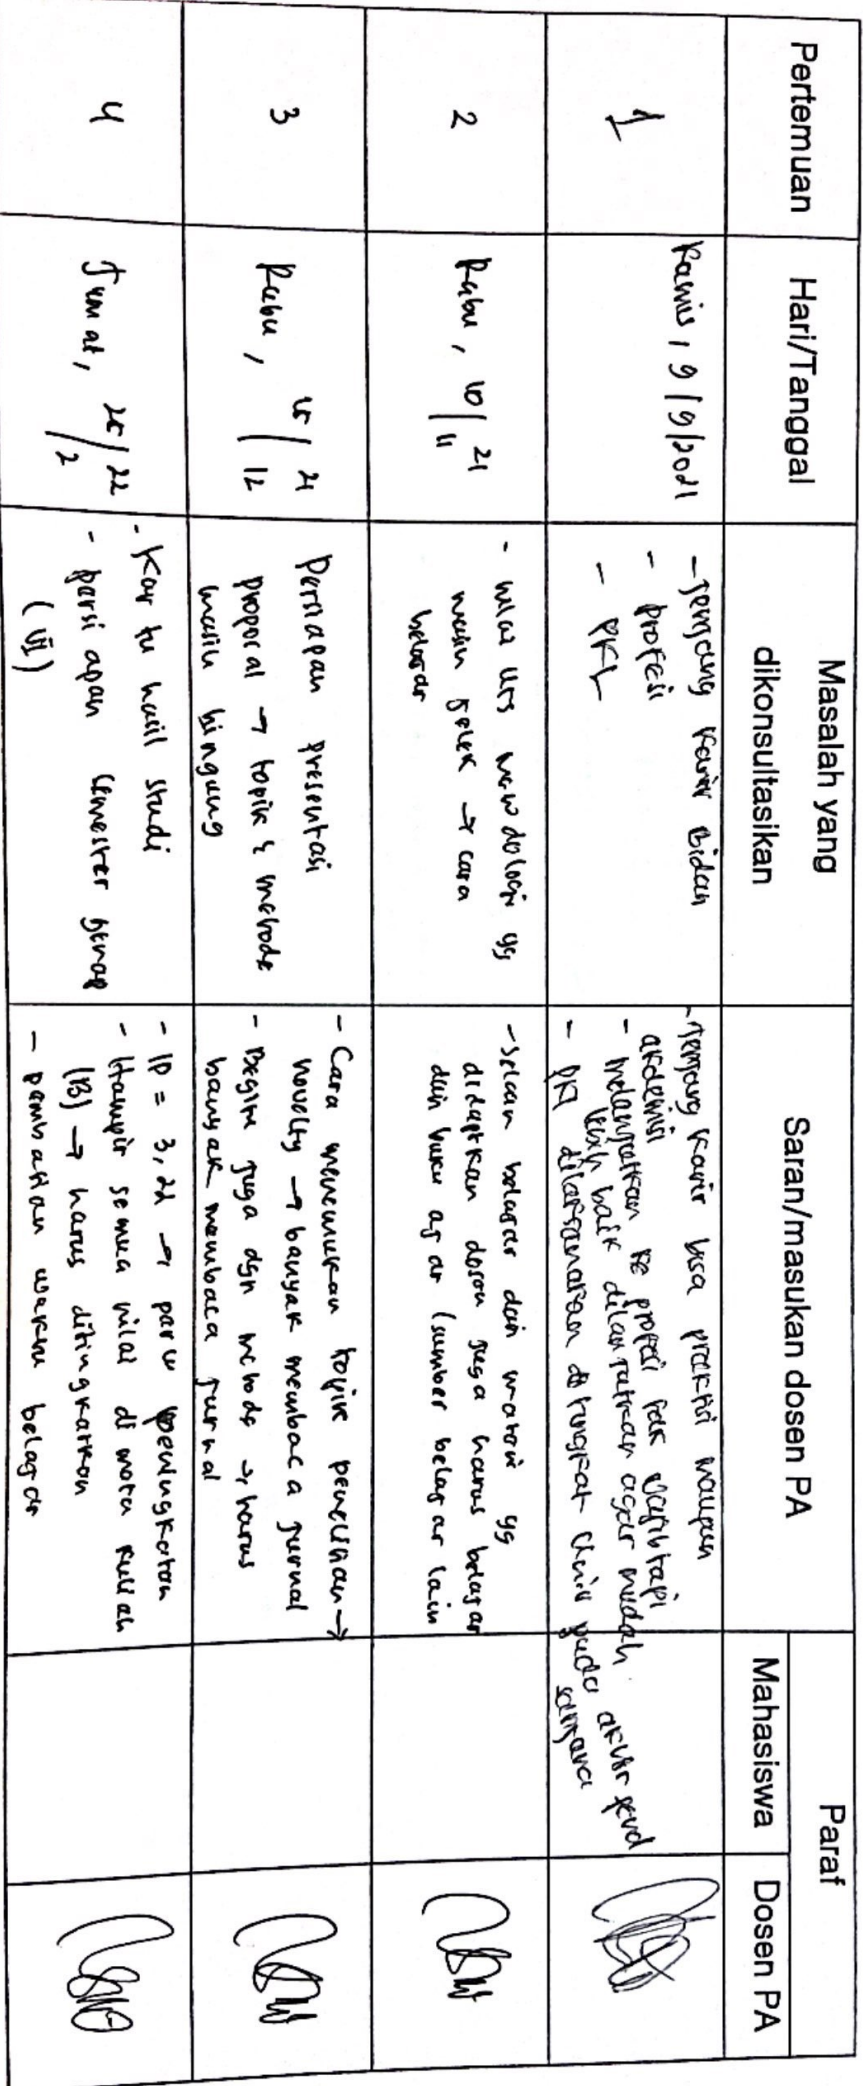 Pertemuan
Hari/Tanggal
Masalah yang
dikonsultasikan
Saran/masukan dosen PA
Paraf
Mahasiswa
Dosen PA
1
Kamis, 9/9/2021
- Jenjang karir Bidan
- Profesi
- PKL
- Jenjang karir bisa praktisi maupun
akdemisi
- melanjutkan ke profesi tak wajib tapi
lebih baik dilanjutkan agar mudah.
- PKL dilaksanakan di tingkat akhir pada akhir
sarjana
2
Rabu, 10/11 21
- nilai uts yg
masih jelek → cara
belajar
- Selain belajar dari materi yg
didaptkan dosen juga harus belajar
dari buku ajar (sumber belajar lain
3
Rabu, 15/12 21
Persiapan presentasi
proposal → topik & metode
masih bingung
- Cara menemukan topik penelitian →
novelty → banyak membaca jurnal
- Begitu juga dgn metode → harus
banyak membaca jurnal
4
Jumat, 25/2 22
- Kartu hasil studi
- persiapan semester genap
(VI)
- IP = 3,21 → perlu peningkatan
- Hampir semua nilai di mata kuliah
(B) → harus ditingkatkan
- pembagian waktu belajar